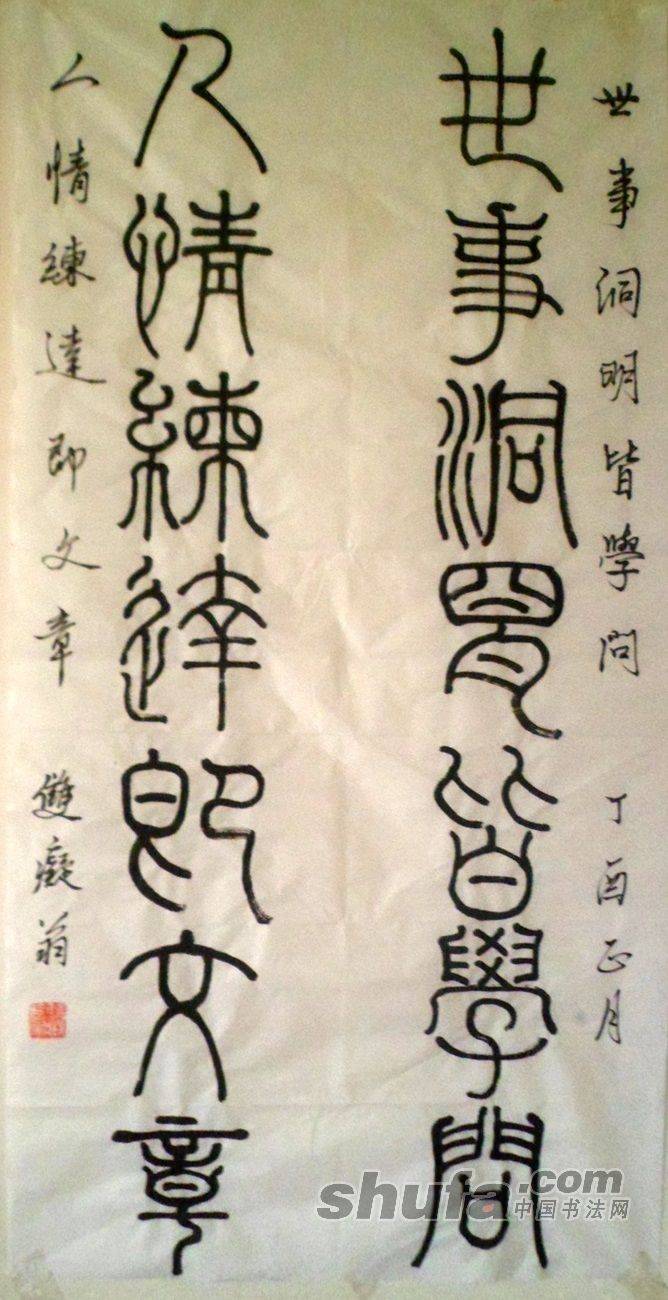 世事洞明皆學問 丁酉正月
世事洞明皆學問
人情練達即文章
人情練達即文章 雙癡翁
shufa.com
中国书法网